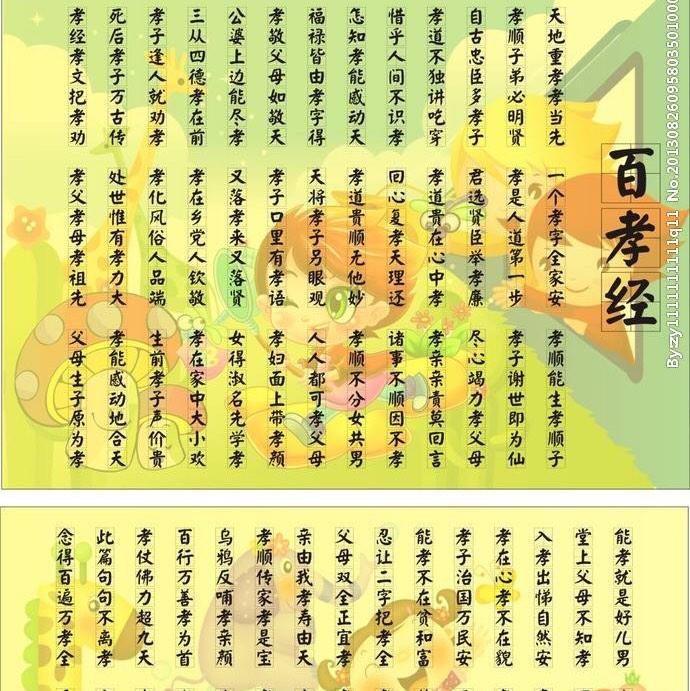 百孝经
天地重孝孝当先
一个孝字全家安
孝顺能生孝顺子
孝顺子弟必明贤
孝是人道第一步
孝子谢世即为仙
自古忠臣多孝子
君选贤臣举孝廉
尽心竭力孝父母
孝道不独讲吃穿
孝道贵在心中孝
孝亲亲责莫回言
惜乎人间不识孝
回心复孝天理还
诸事不顺因不孝
怎知孝能感动天
孝道贵顺无他妙
孝顺不分女共男
福禄皆由孝字得
天将孝子另眼观
人人都可孝父母
孝敬父母如敬天
孝子口里有孝语
孝妇面上带孝颜
公婆上边能尽孝
又落孝来又落贤
女得淑名先学孝
三从四德孝在前
孝在乡党人钦敬
孝在家中大小欢
孝子逢人就劝孝
孝化风俗人品端
生前孝子声价贵
死后孝子万古传
处世惟有孝力大
孝能感动地合天
孝经孝文把孝劝
孝父孝母孝祖先
父母生子原为孝
能孝就是好儿男
堂上父母不知孝
入孝出悌自然安
孝在心孝不在貌
孝子治国万民安
能孝不在贫和富
忍让二字把孝全
父母双全正宜孝
亲由我孝寿由天
孝顺传家孝是宝
乌鸦反哺孝亲颜
百行万善孝为首
孝仗佛力超九天
此篇句句不离孝
念得百遍万孝全
By:zy1111111111q11 No.20130826095803501000